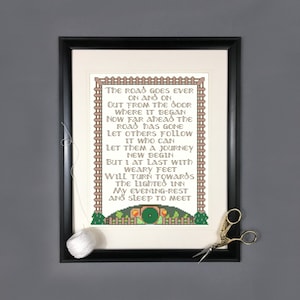 The road goes ever
on and on
Out from the door
where it began
Now far ahead the
road has gone
Let others follow
it who can
Let them a journey
new begin
But I at last with
weary feet
Will turn towards
the lighted inn
My evening-rest
and sleep to meet